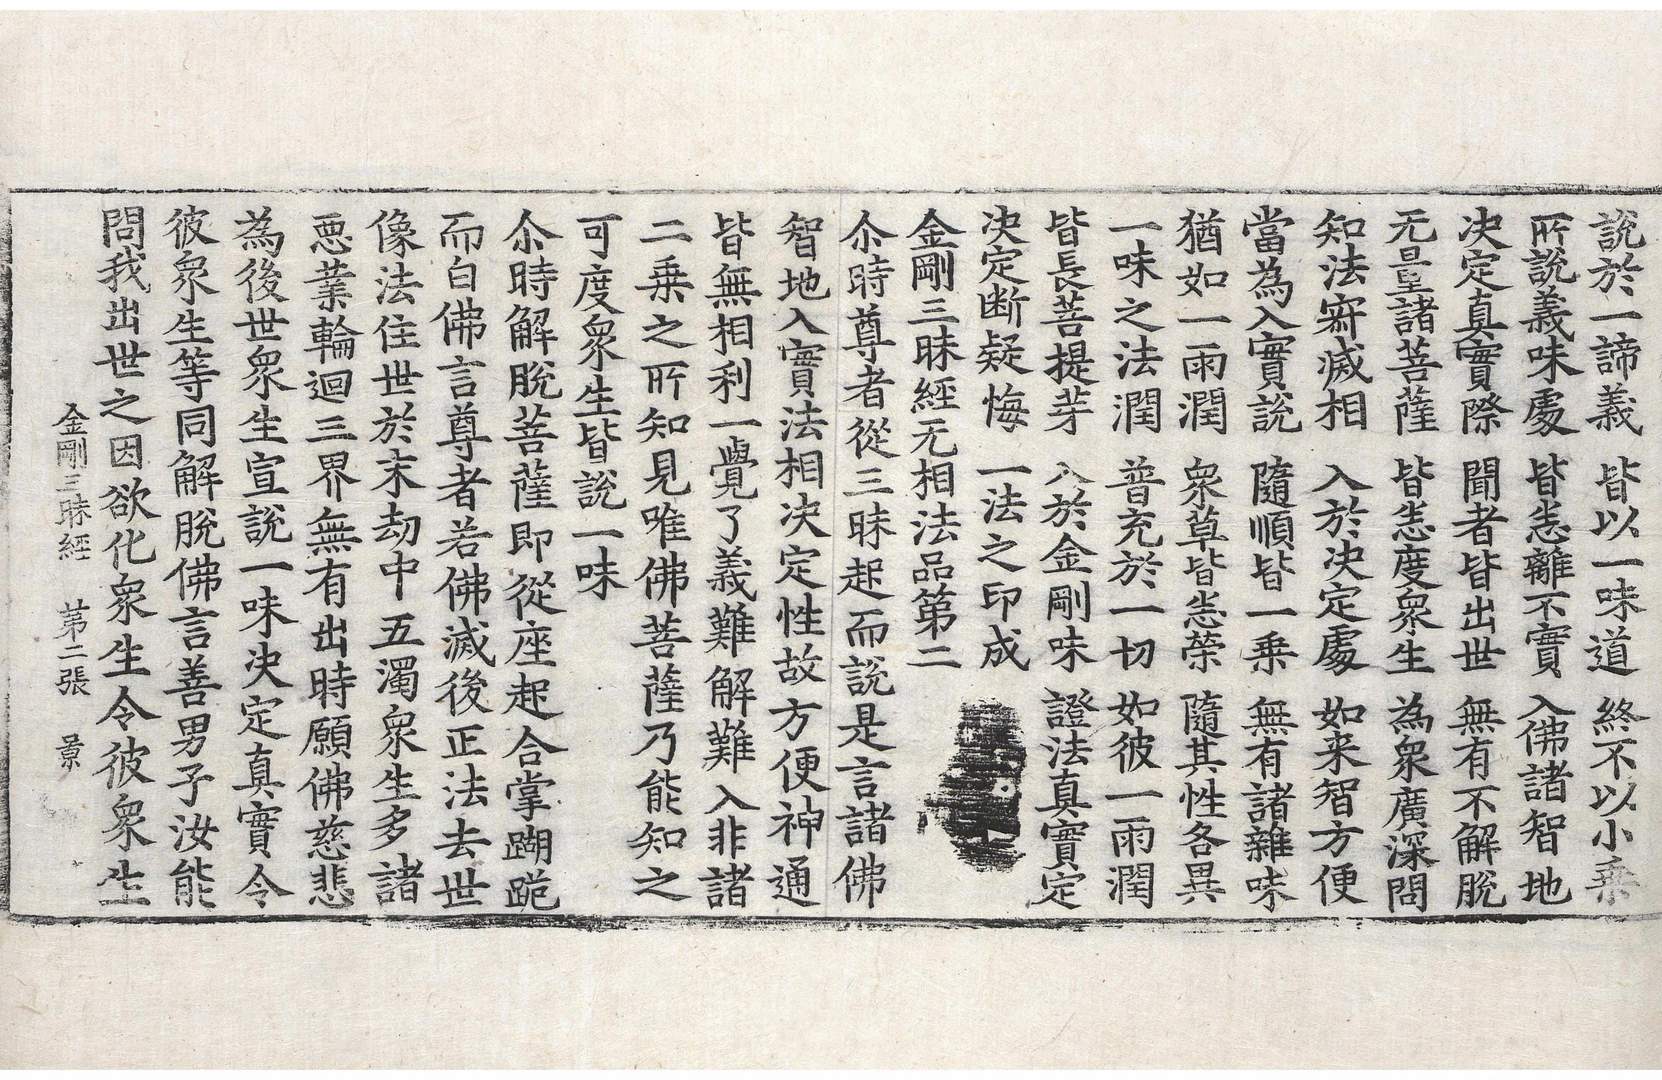 說於一諦義　皆以一味道　終不以小乗
所說義味處　皆悉離不實　入佛諸智地
决定真實際　聞者皆出世　無有不解脫
无量諸菩薩　皆悉度衆生　為衆廣深問
知法寂滅相　入於决定處　如来智方便
當為入實說　隨順皆一乗　無有諸雜味
猶如一雨潤　衆草皆悉榮　隨其性各異
一味之法潤　普充於一切　如彼一雨潤
皆長菩提芽　入於金剛味　證法真實定
决定断疑悔　一法之印成
金剛三昧經无相法品第二
尒時尊者從三昧起而說是言諸佛
智地入實法相决定性故方便神通
皆無相利一覺了義難解難入非諸
二乗之所知見唯佛菩薩乃能知之
可度衆生皆說一味
尒時解脫菩薩即從座起合掌蹦跪
而白佛言尊者若佛滅後正法去世
像法住世於末劫中五濁衆生多諸
悪業輪迴三界無有出時願佛慈悲
為後世衆生宣說一味决定真實令
彼衆生等同解脫佛言善男子汝能
問我出世之因欲化衆生令彼衆生
金剛三昧經　第二張　景